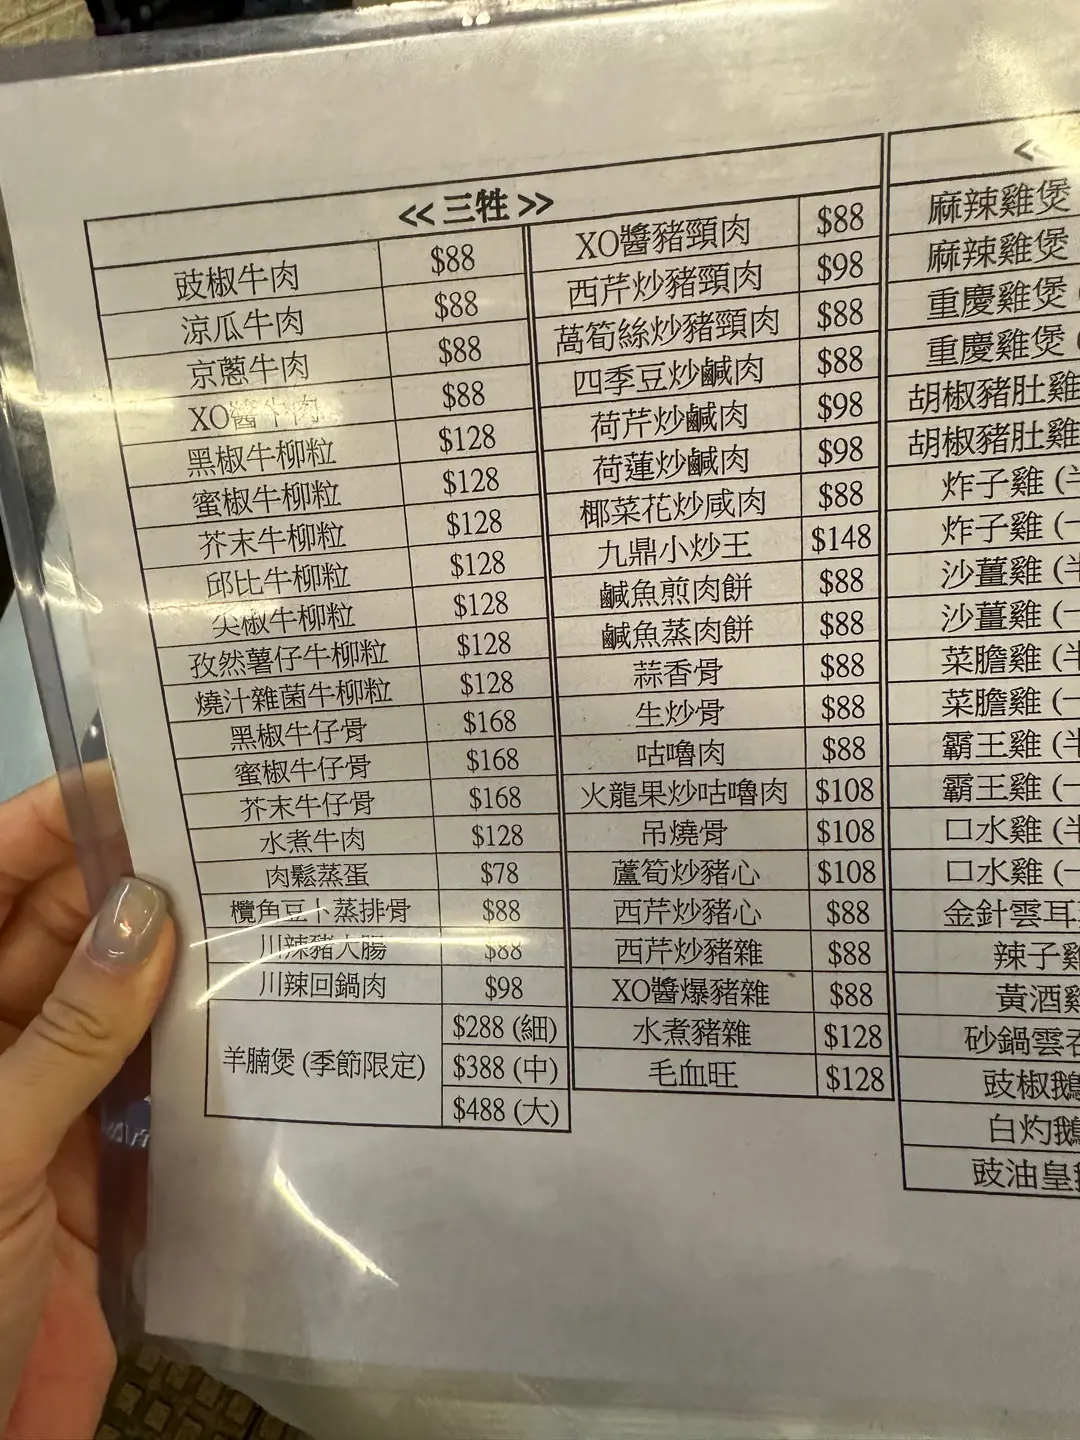 << 三牲 >>
豉椒牛肉 $88
涼瓜牛肉 $88
京蔥牛肉 $88
XO醬牛肉 $88
黑椒牛柳粒 $128
蜜椒牛柳粒 $128
芥末牛柳粒 $128
邱比牛柳粒 $128
尖椒牛柳粒 $128
孜然薯仔牛柳粒 $128
燒汁雜菌牛柳粒 $128
黑椒牛仔骨 $168
蜜椒牛仔骨 $168
芥末牛仔骨 $168
水煮牛肉 $128
肉鬆蒸蛋 $78
欖角豆卜蒸排骨 $88
川辣豬大腸 $88
川辣回鍋肉 $98
羊腩煲 (季節限定)
$288 (細)
$388 (中)
$488 (大)
XO醬豬頸肉 $88
西芹炒豬頸肉 $98
萵筍絲炒豬頸肉 $88
四季豆炒鹹肉 $88
荷芹炒鹹肉 $98
荷蓮炒鹹肉 $98
椰菜花炒咸肉 $88
九鼎小炒王 $148
鹹魚煎肉餅 $88
鹹魚蒸肉餅 $88
蒜香骨 $88
生炒骨 $88
咕嚕肉 $88
火龍果炒咕嚕肉 $108
吊燒骨 $108
蘆筍炒豬心 $108
西芹炒豬心 $88
西芹炒豬雜 $88
XO醬爆豬雜 $88
水煮豬雜 $128
毛血旺 $128
<<
麻辣雞煲
麻辣雞煲
重慶雞煲 (
重慶雞煲 (
胡椒豬肚雞
胡椒豬肚雞
炸子雞 (半
炸子雞 (一
沙薑雞 (半
沙薑雞 (一
菜膽雞 (半
菜膽雞 (一
霸王雞 (半
霸王雞 (一
口水雞 (半
口水雞 (一
金針雲耳
辣子雞
黃酒雞
砂鍋雲吞
豉椒鵝
白灼鵝
豉油皇